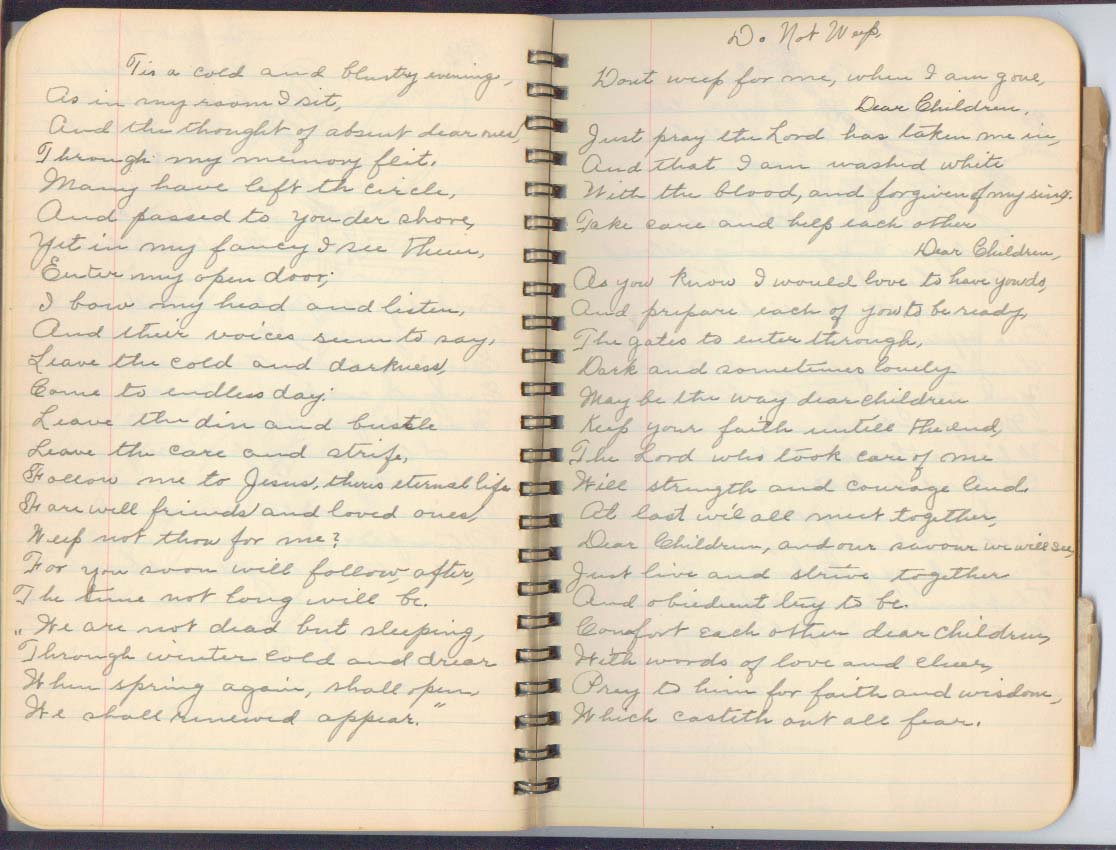 Tis a cold and blustry evening,
As in my room I sit,
And the thought of absent dear ones,
Through my memory flit.
Many have left th circle,
And passed to yonder shore,
Yet in my fancy I see them,
Enter my open door;
I bow my head and listen,
And their voices seem to say,
Leave the cold and darkness,
Come to endless day.
Leave the din and bustle
Leave the care and strife,
Follow me to Jesus, theirs eternal life
Fare will friends and loved ones,
Weep not thou for me?
For you soon will follow after,
The time not long will be.
"We are not dead but sleeping,
Through winter cold and drear
When spring again, shall open
We shall renewed appear."
Do Not Weep
Dont weep for me, when I am gone,
Dear Children,
Just pray the Lord has taken me in,
And that I am washed white
With the blood, and forgiven of my sins.
Take care and help each other
Dear Children,
As you know I would love to have you do,
And prepare each of you to be ready,
The gates to enter through,
Dark and sometimes lonely
May be the way dear children
Keep your faith untill the end,
The Lord who took care of me
Will strength and courage lend.
At last we'l all meet together,
Dear Children, and our savour we will see,
Just live and strive together
And obedient try to be.
Comfort each other dear children,
With words of love and cheer,
Pray to him for faith and wisdom,
Which casteth out all fear.